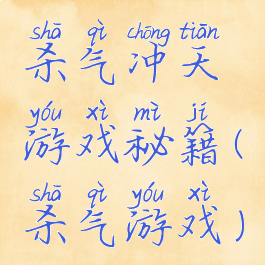 shā qì chōng tiān
杀气冲天
yóu xì mì jí
游戏秘籍(
shā qì yóu xì
杀气游戏)